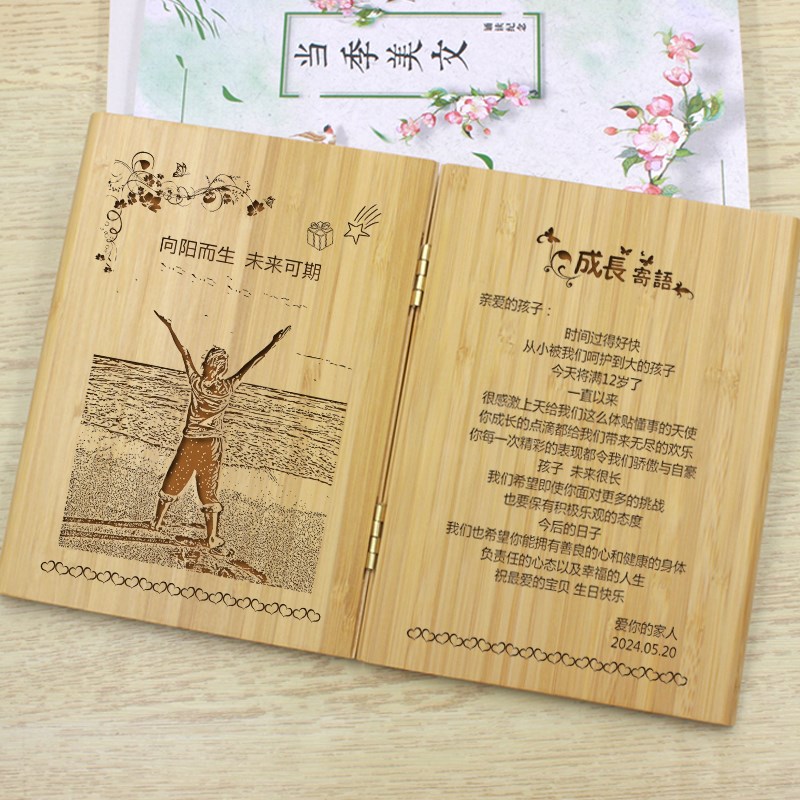 当季美文
诵读纪念
向阳而生 未来可期
成長寄語
亲爱的孩子：
时间过得好快
从小被我们呵护到大的孩子
今天将满12岁了
一直以来
很感激上天给我们这么体贴懂事的天使
你成长的点滴都给我们带来无尽的欢乐
你每一次精彩的表现都令我们骄傲与自豪
孩子 未来很长
我们希望即使你面对更多的挑战
也要保有积极乐观的态度
今后的日子
我们也希望你能拥有善良的心和健康的身体
负责任的心态以及幸福的人生
祝最爱的宝贝 生日快乐
爱你的家人
2024.05.20